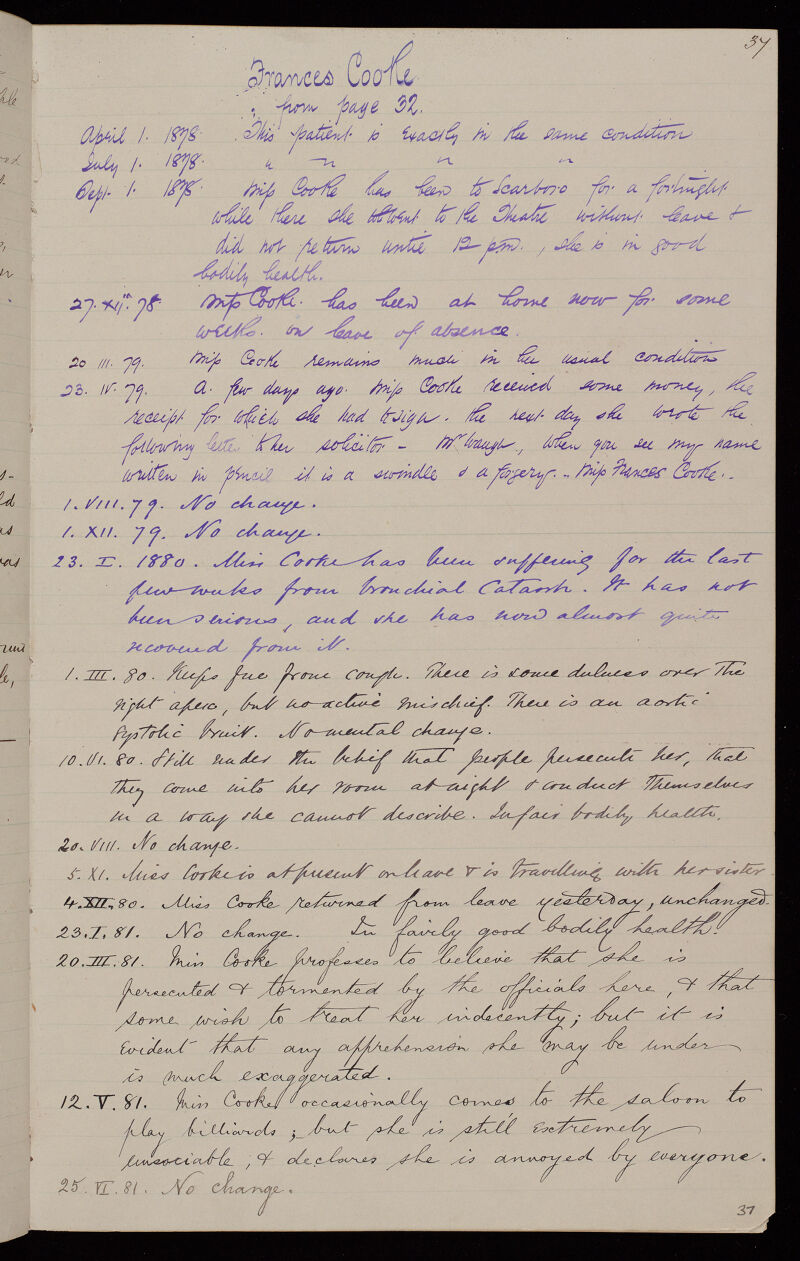 37
Frances Cooke
from page 32.
April 1. 1878. This patient is exactly in the same condition
July 1. 1878. " " " "
Sept. 1. 1878. Miss Cooke has been to Scarboro for a fortnight
while there she went to the Theatre without leave &
did not return until 12 p.m., she is in good
bodily health.
27. XII. 78. Miss Cooke has been at home now for some
weeks on leave of absence.
20 III. 79. Miss Cooke remains much in her usual condition
23. IV. 79. A few days ago Miss Cooke received some money, the
receipt for which she had to sign. The next day she wrote the
following letter to her solicitor – Mr Waugh, when you see my name
written in pencil it is a swindle & a forgery. – Miss Frances Cooke. –
1. VIII. 79. No change.
1. XII. 79. No change.
23. I. 1880. Miss Cooke has been suffering for the last
few weeks from bronchial Catarrh. It has not
been serious, and she has now almost quite
recovered from it.
1. III. 80. Keeps free from cough. There is some dulness over the
right apex, but no active mischief. There is an aortic
systolic bruit. No mental change.
10. VI. 80. Still under the belief that people persecute her, that
they come into her room at night & conduct themselves
in a way she cannot describe. In fair bodily health.
20. VIII. No change.
5. XI. Miss Cooke is at present on leave & is travelling with her sister.
4. XII. 80. Miss Cooke returned from leave yesterday, unchanged.
23. I. 81. No change. In fairly good bodily health.
20. III. 81. Miss Cooke professes to believe that she is
persecuted & tormented by the officials here, & that
some wish to treat her indecently; but it is
evident that any apprehension she may be under
is much exaggerated.
12. V. 81. Miss Cooke occasionally comes to the saloon to
play billiards; but she is still extremely
unsociable, & declares she is annoyed by everyone.
25. VI. 81. No change.
37